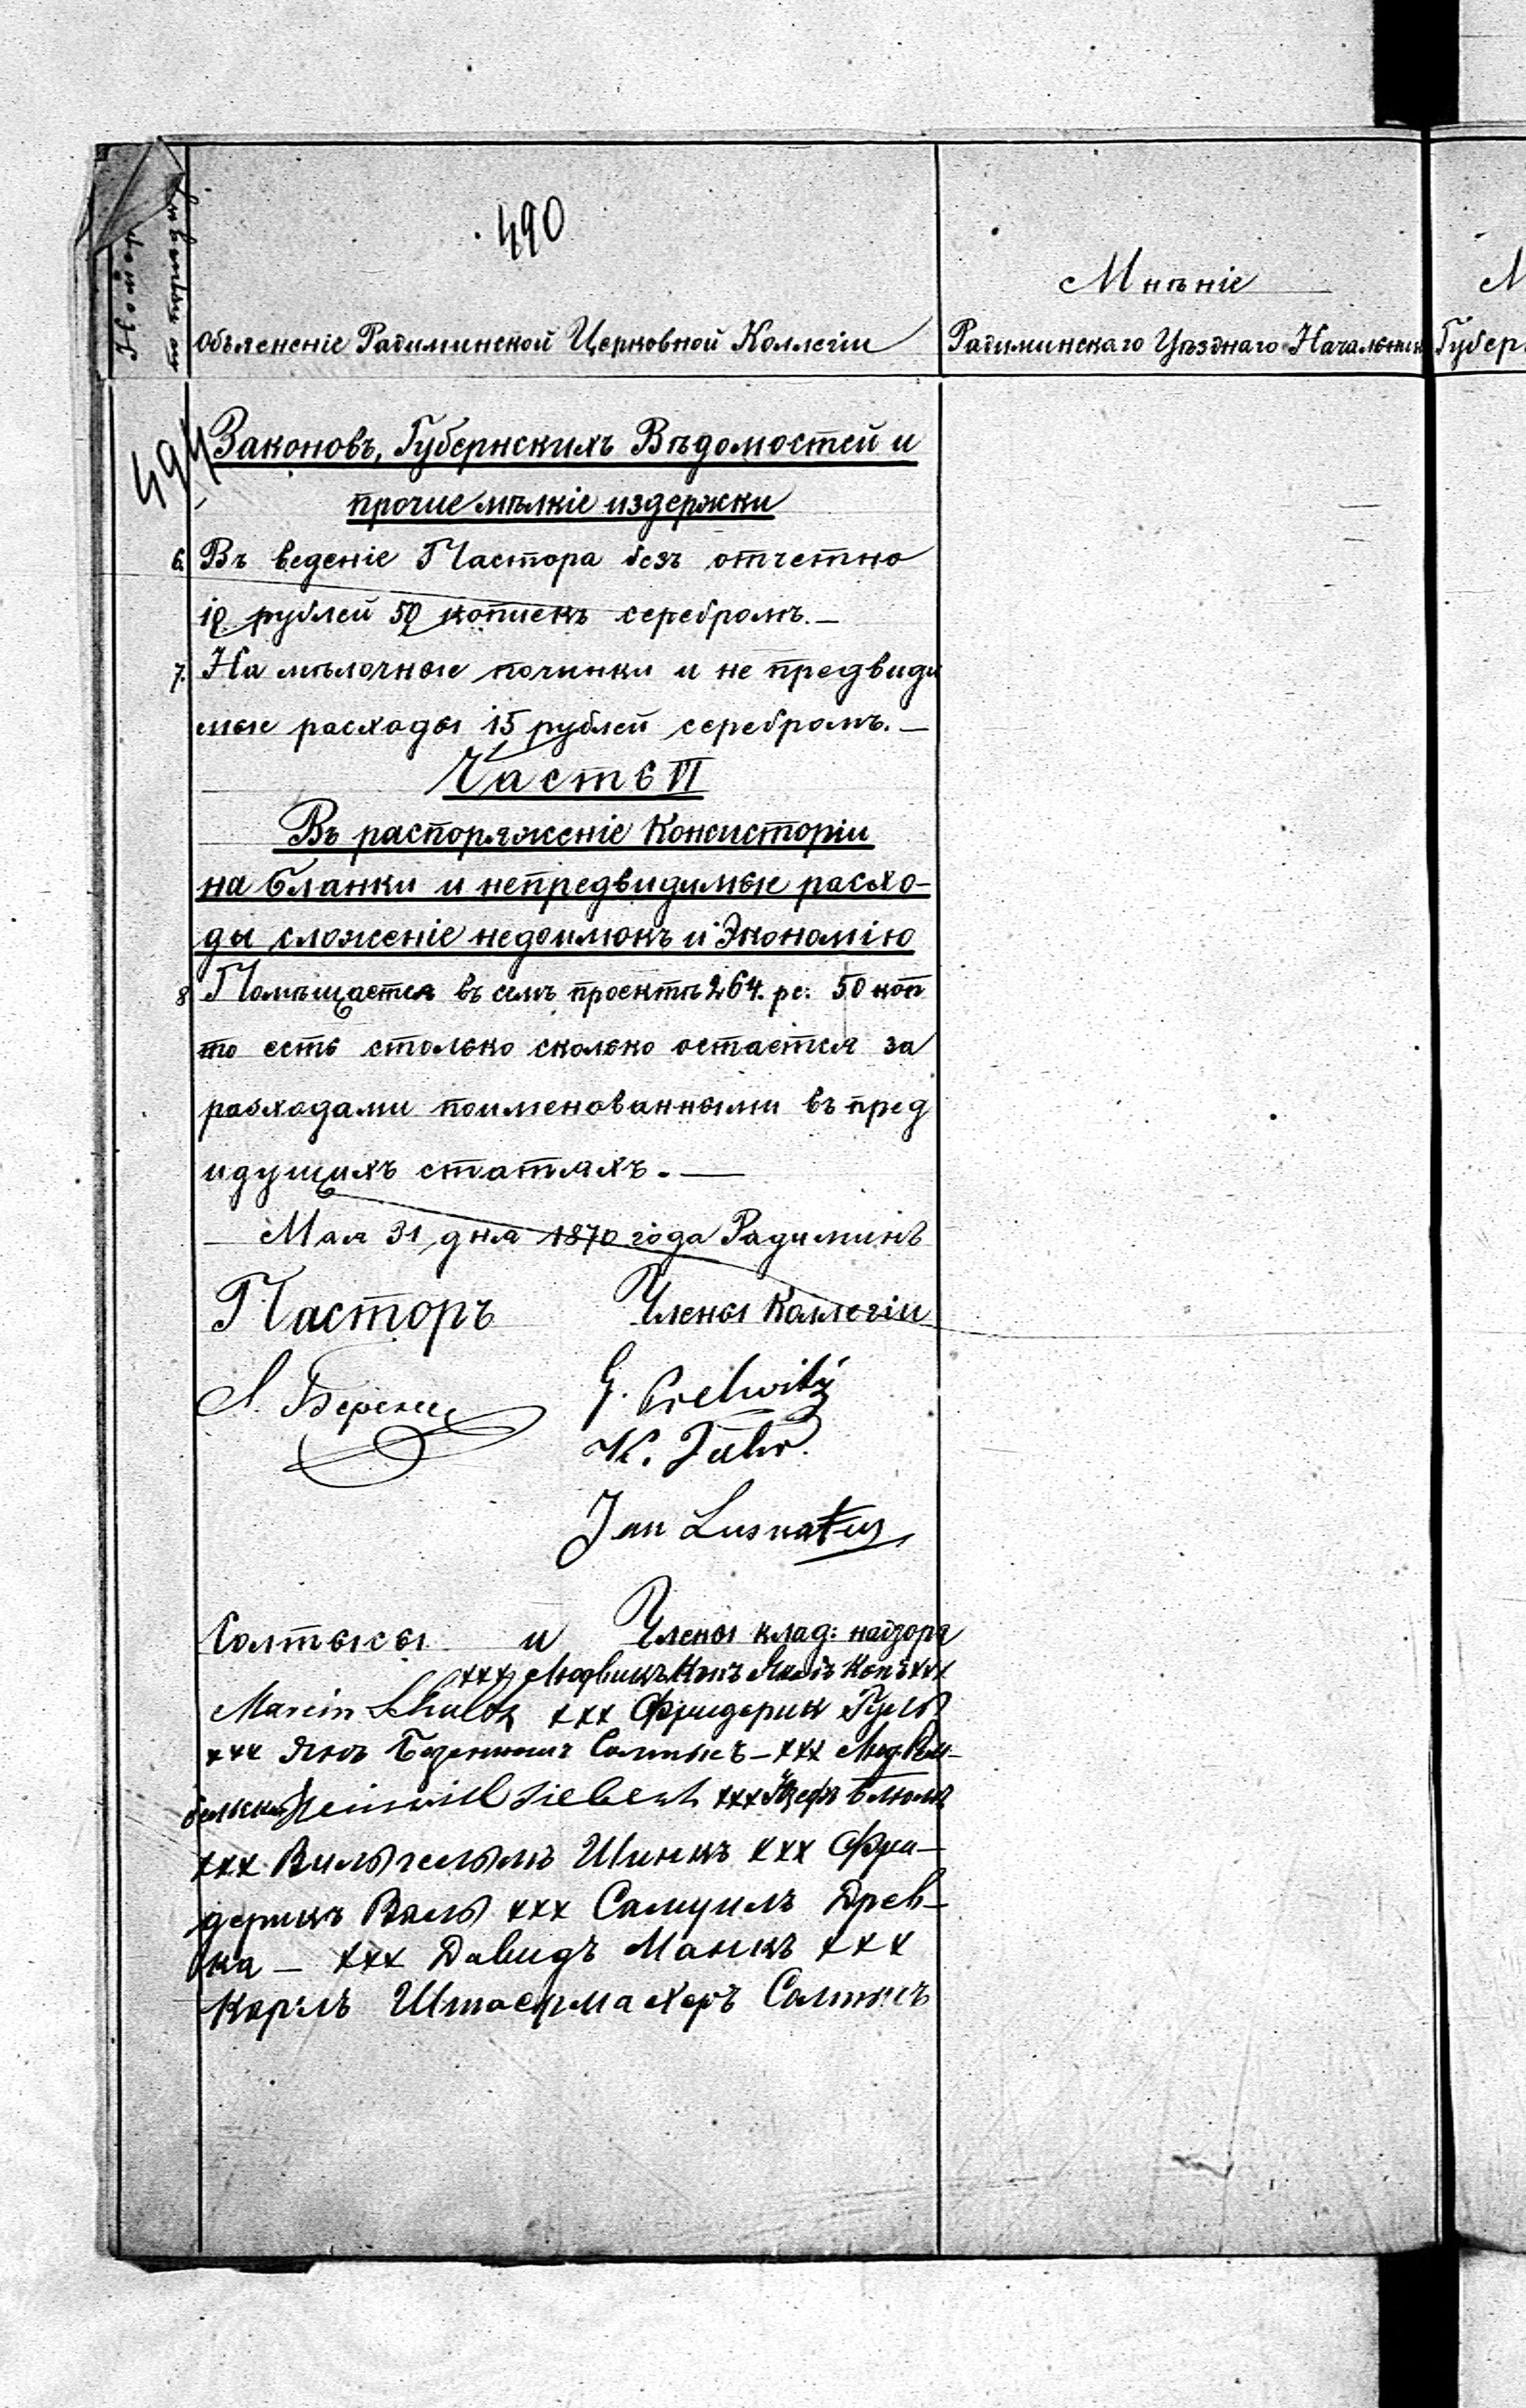 490
Объясненіе Радиминской Церковной Коллегіи
Мнѣніе
Радиминскаго Уѣзднаго Начальника
М
Губер
494
Законовъ, Губернскихъ Вѣдомостей и
прочие мѣлкіе издержки
6. Въ веденіе Пастора безъ отчетно
10 рублей 50 копѣекъ серебромъ.—
7. На мѣлочные починки и не предвиди
мые расходы 15 рублей серебромъ.—
Часть VI
Въ распоряженіе Консисторіи
на бланки и непредвидимые расхо-
ды сложеніе недоимокъ и Экономію
8 Помѣщается въ семъ проектѣ 264. рс: 50 коп
то есть столько сколько остается за
расходами поименованными въ пред
идущихъ статьяхъ.—
Мая 31 дня 1870 года Радиминъ
Пасторъ Члены Коллегіи
G.
K.
Jan
Солтысы и Члены клад: надзора
xxx Людвикъ xxx
Marcin xxx Фридерик
xxx Солтысъ - xxx
xxx
xxx Вильгельмъ Шинкъ xxx Фри-
дерикъ Валь xxx Самуилъ Древ-
ка - xxx Давидъ Манкъ xxx
Карлъ Солтысъ